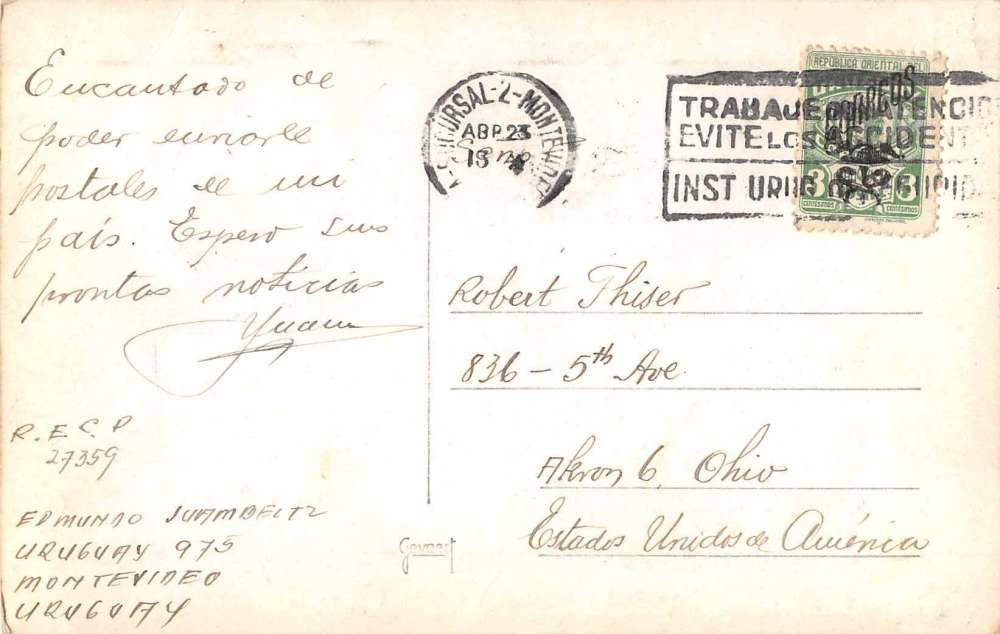 Encantado de
poder enviarle
postales de mi
país. Espero sus
prontas noticias
R.E.C.P
27359
EDMUNDO
URUGUAY 975
MONTEVIDEO
URUGUAY
SUCURSAL-2-MONTEVIDEO
ABR 23
19
TRABAJE CON ATENCION
EVITE LOS ACCIDENTES
INST URUG
REPÚBLICA ORIENTAL DEL
3 3
CENTÉSIMOS CENTÉSIMOS
Robert Thiser
836 - 5th Ave.
Akron 6, Ohio
Estados Unidos de América
Gevaert